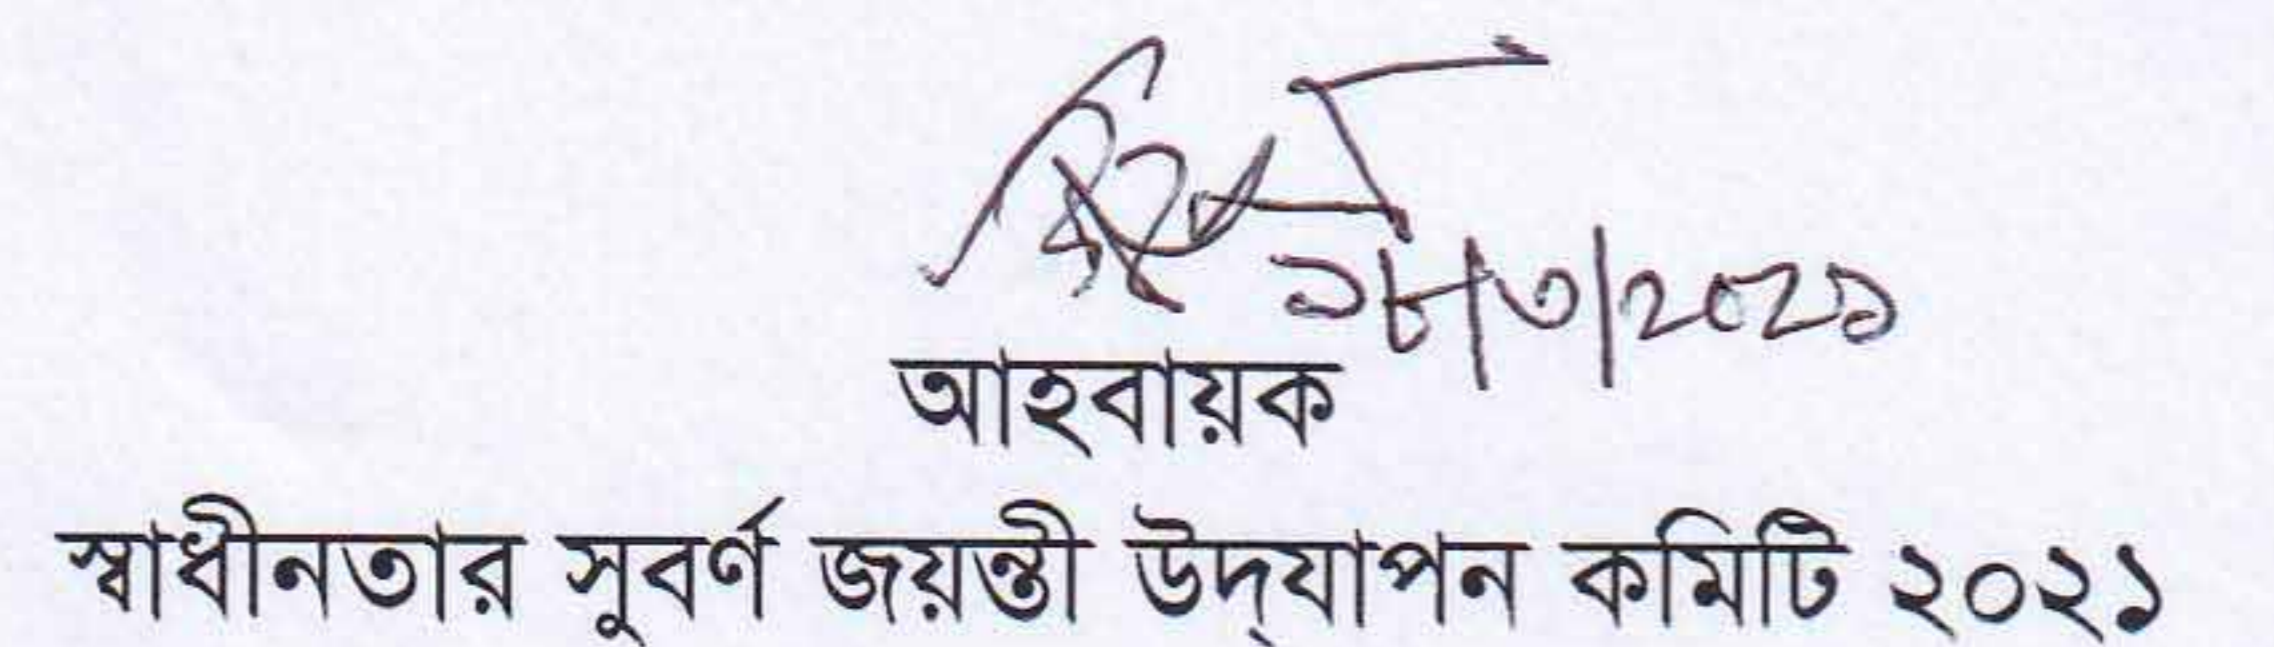 ১৮/৩/২০২১
আহবায়ক
স্বাধীনতার সুবর্ণ জয়ন্তী উদ্‌যাপন কমিটি ২০২১